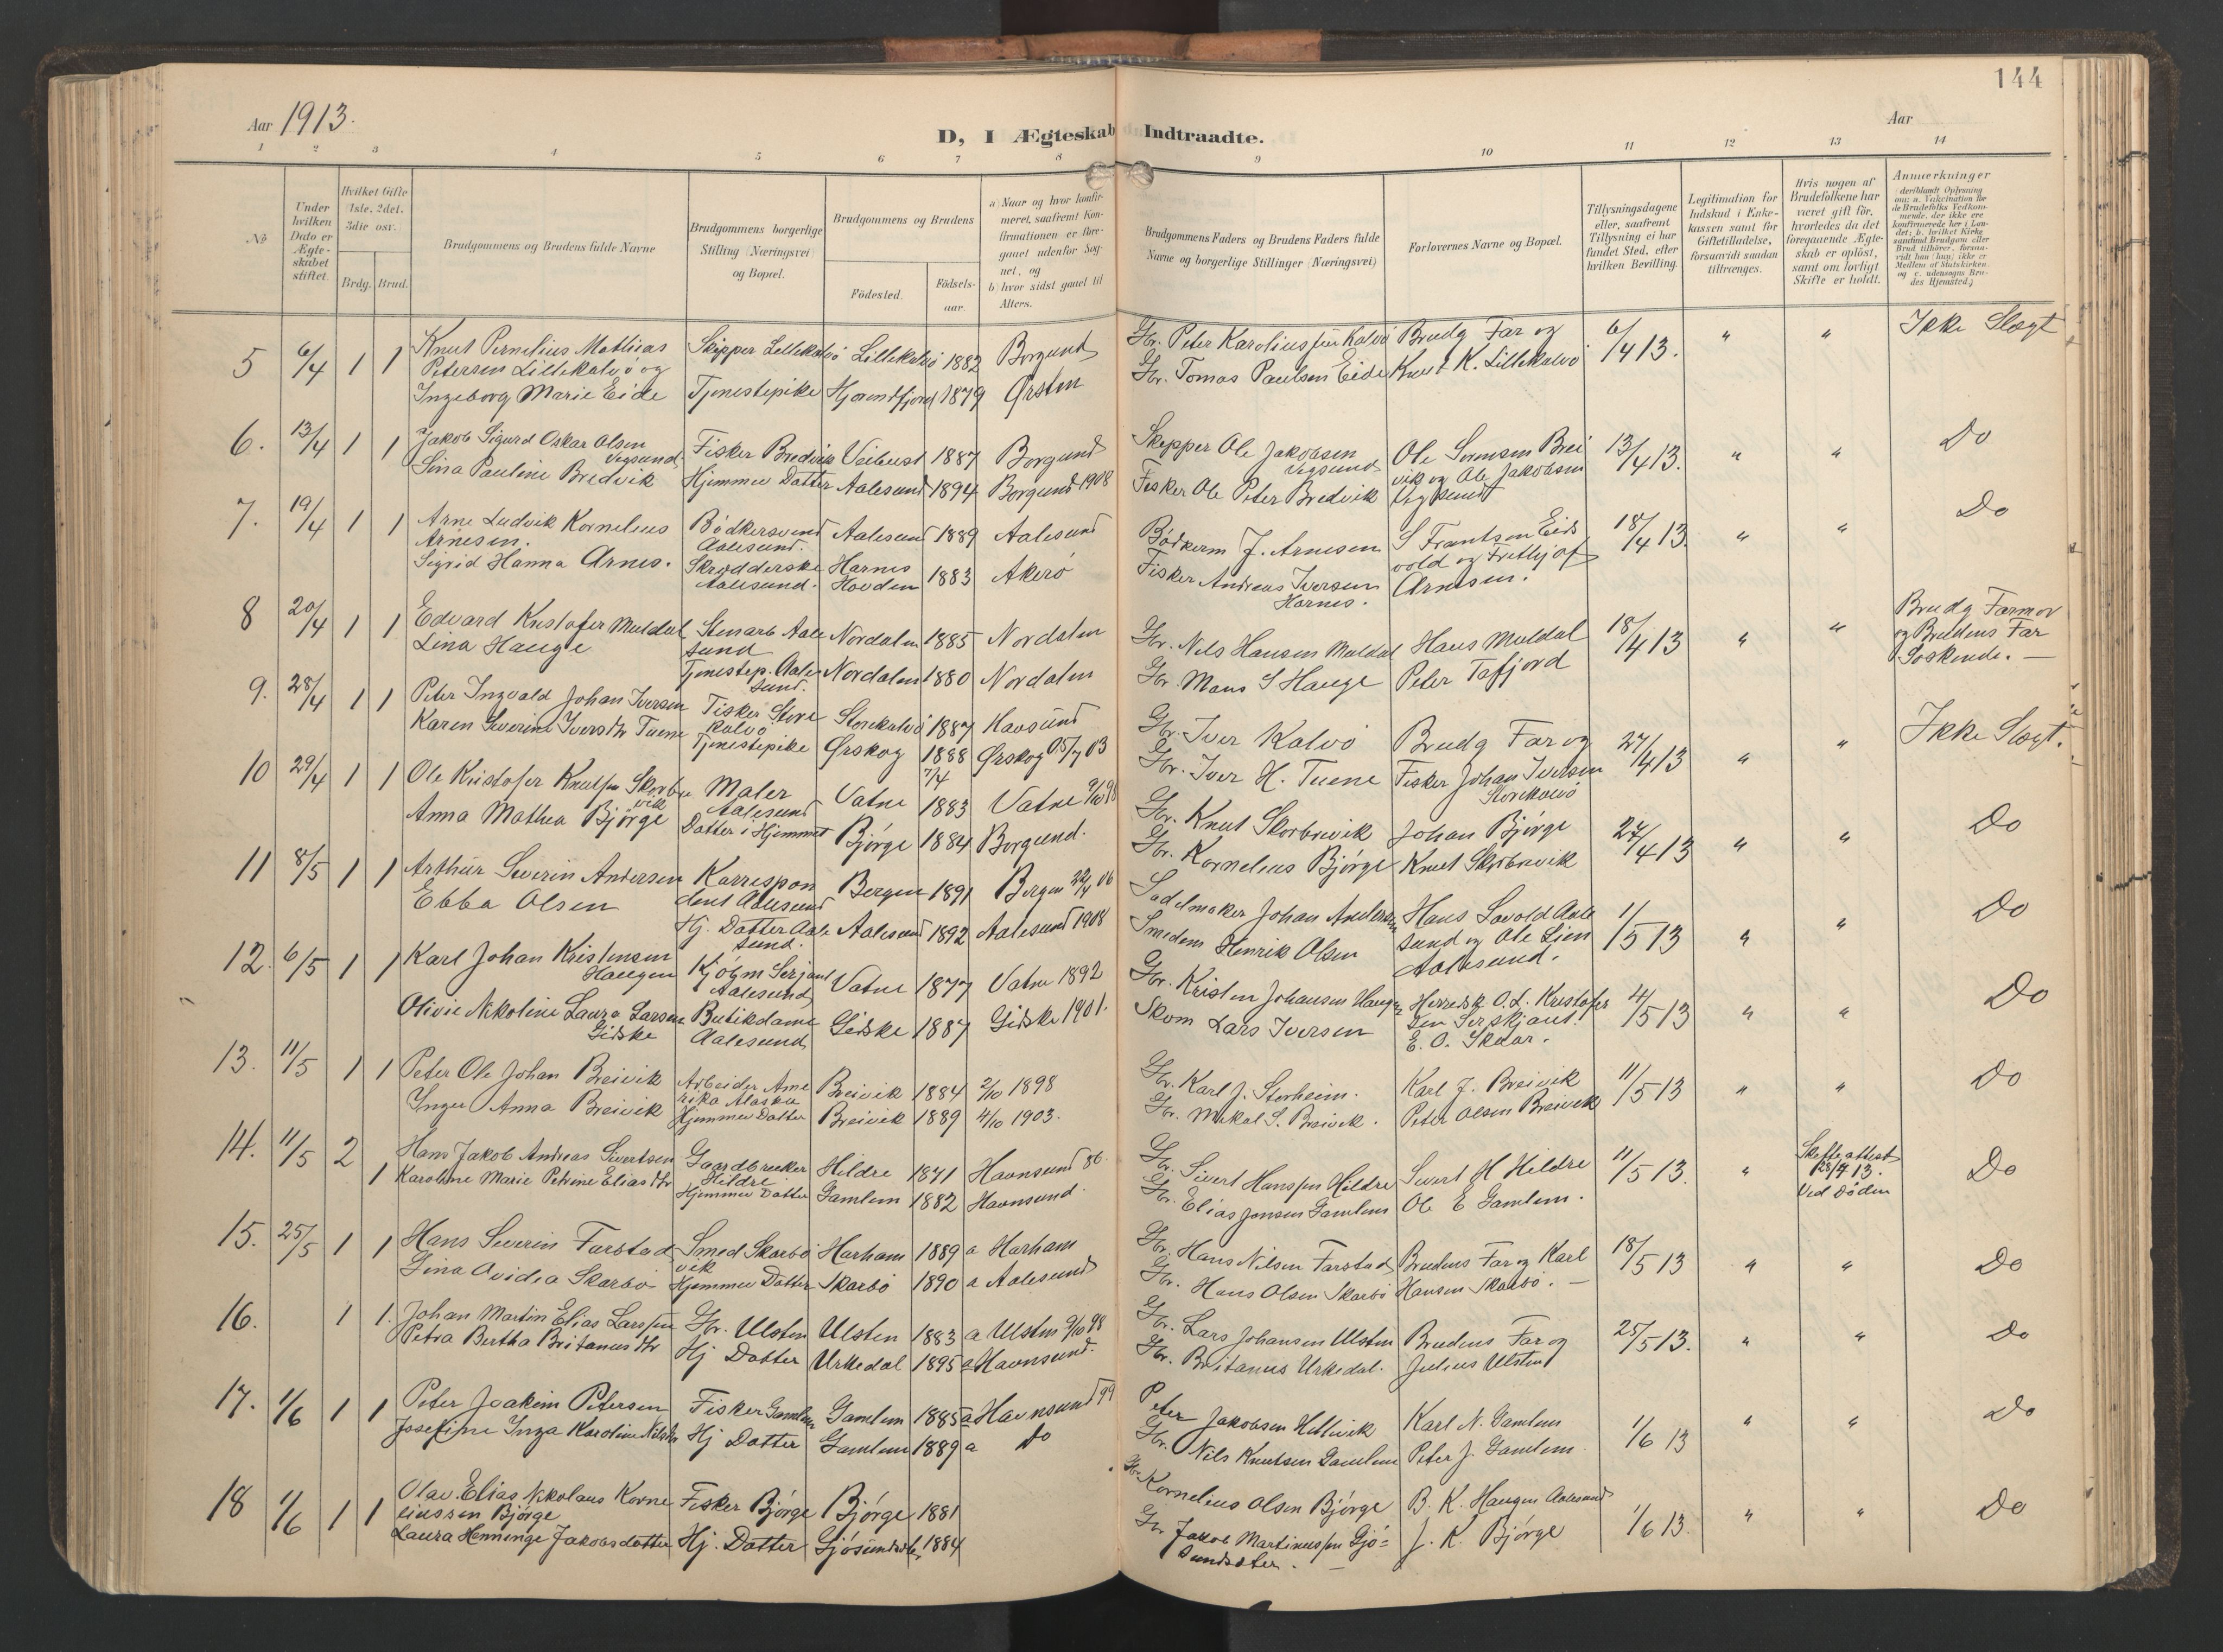 144
Aar 1913.
Aar
D, I Ægteskab Indtraadte.
1 2 3 4 5 6 7 8 9 10 11 12 13 14
No
Under hvilken Dato er Ægteskabet stiftet.
Hvilket Gifte (1ste, 2det, 3die osv.
Brdg. Brud.
Brudgommens og Brudens fulde Navne
Brudgommens borgerlige Stilling (Næringsvei) og Bopæl.
Brudgommens og Brudens
Födested.
Födselsaar.
a) Naar og hvor konfirmeret, saafremt Konfirmationen er foregaaet udenfor Sognet, og
b) hvor sidst gaaet til Alters.
Brudgommens Faders og Brudens Faders fulde Navne og borgerlige Stillinger (Næringsvei)
Forlovernes Navne og Bopæl.
Tillysningsdagene eller, saafremt Tillysning ei har fundet Sted, efter hvilken Bevilling.
Legitimation for Indskud i Enkekassen samt for Giftetilladelse, forsaavidt saadan tiltrænges.
Hvis nogen af Brudefolkene har været gift för, hvorledes da det foregaaende Ægteskab er oplöst, samt om lovligt Skifte er holdt.
Anmærkninger
(deriblandt Oplysning om: a. Vakcination for de Brudefolks Vedkommende, der ikke ere konfirmerede her i Landet; b. hvilket Kirkesamfund Brudgom eller Brud tilhörer, forsaavidt han (hun) ikke er Medlem af Statskirken og c. udensogns Brudes Hjemsted.)
5 6/4 1 1 Knut Pernelius Mathias Skipper Lillekalvö Lillekalvö 1882 Borgund Gbr. Peter Karoliussen Kalvö Brudg Far og 6/4 13. " " Ikke Slægt
Petersen Lillekalvö og
Ingeborg Marie Eide Tjenestepike Hjørendfjord 1879 Ørsten Gbr. Tomas Paulsen Eide Knut K. Lillekalvö
6. 13/4 1 1 Jakob Sigurd Oskar Olsen Fisker Bredvik Veibust 1887 Borgund Skipper Ole Jakobsen Ole Sørensen Brei 13/4 13. " " Do
Vegsund Vegsund vik og Ole Jakobsen
Lina Pauline Bredvik Hjemmev Datter Aalesund 1894 Borgund 1908 Fisker Ole Peter Bredvik Vegsund
7. 19/4 1 1 Arne Ludvik Kornelius Bödkersvend Aalesund 1889 Aalesund Bödkerm J. Arnesen S Frantsen Eids 18/4 13. " " Do
Arnesen. Aalesund. vold og Fritthjof
Sigrid Hanna Arnes. Skrædderske Harnes 1883 Akerö Fisker Andreas Iversen Arnesen.
Aalesund. Hovden Harnes.
8 20/4 1 1 Edvard Kristofer Muldal Stenarb Aale Nordalen 1885 Nordalen Gbr. Nils Hansen Muldal Hans Muldal 18/4 13 " " Brudg Farmor
Lina Hauge sund og Brudens Far
Tjenestep. Aale Nordalen 1880 Nordalen Gbr. Mans S Hauge Peter Tafjord Söskende. —
sund.
9. 28/4 1 1 Peter Ingvald Johan Iversen Fisker Store Storekalvö 1887 Havsund Gbr. Iver Kalvö Brudg Far og 27/4 13 " " Ikke Slægt.
kalvö
Karen Severine Iversdtr Tuene Tjenestepike Ørskog 1888 Ørskog 05/7 03 Gbr. Iver H. Tuene Fisker Johan Iversen
Storekalvö
10 29/4 1 1 Ole Kristofer Knutsen Skorbre Maler Vatne 7/4 1883 Vatne 9/10 98 Gbr. Knut Skorbrevik Johan Bjørge 27/4 13 " " Do
vik Aalesund
Anna Mathea Bjørge Datter i Hjemmet Bjørge 1884 Borgund. Gbr. Kornelius Bjørge Knut Skorbrevik
11 8/5 1 1 Arthur Severin Andersen Korrespon Bergen 1891 Bergen 22/4 06 Sadelmaker Johan Andersen Hans Lovold Aale 1/5 13 " " Do
Ebba Olsen dent Aalesund sund og Ole Lien
Hj. Datter Aale Aalesund 1892 Aalesund 1908 Smedem Henrik Olsen Aalesund.
sund.
12. 6/5 1 1 Karl Johan Kristensen Kjöbm Serjant Vatne 1877 Vatne 1892 Gbr. Kristen Johansen Haugen Herredsk O. L. Kristofer 4/5 13 " " Do
Haugen Aalesund sen
Olivie Nikoline Laura Larsen Butikdame Gidske 1887 Gidske 1901. Skom Lars Iversen E. O. Skaar.
Gidske Aalesund
13. 11/5 1 1 Peter Ole Johan Breivik Arbeider Ame Breivik 1884 2/10 1898 Gbr. Karl J. Storheim. Karl J. Breivik 11/5 13 " " Do
rika Alaska
Inger Anna Breivik Hjemmev Datter Breivik 1889 4/10 1903. Gbr. Mikal S. Breivik. Peter Olsen Breivik
14. 11/5 2 Hans Jakob Andreas Sivertsen Gaardbruker Hildre 1871 Havnsund 86. Gbr. Sivert Hanssen Hildre Sivert H Hildre 11/5 13. " Skifteattest Do
Hildre 28/4 13.
1 Karoline Marie Petrine Eliasdtr Hjemmev Datter Gamlem 1882 Havnsund. Gbr. Elias Jonsen Gamlem Ole E Gamlem. Ved Döden
15. 25/5 1 1 Hans Severin Farstad Smed Skarbö Harham 1889 a Harham Gbr. Hans Nilsen Farstad Brudens Far og Karl 18/5 13 " " Do
vik
Lina Ovidia Skarbö Hjemmev Datter Skarbö 1890 a Aalesund Gbr. Hans Olsen Skarbö Hansen Skarbö. —
16. 1 1. Johan Martin Elias Larssen Gbr. Ulsten Ulsten 1883 a Ulsten 9/10 98 Gbr. Lars Johansen Ulsten Brudens Far og 25/5 13. " " Do
Petra Bertha Britanusdtr Hj Datter Urkedal 1895 a Havnsund. Gbr. Britanus Urkedal. Julius Ulsten
17. 1/6 1 1 Peter Joakim Petersen Fisker Gamlem Gamlem 1885 a Havnsund 99 Peter Jakobsen Hellevik Karl N. Gamlem 1/6 13 " " Do
Josefine Inga Karoline Nilsdtr Hj Datter Gamlem 1889 a Do Gbr. Nils Knutsen Gamlem Peter J. Gamlem.
18 1/6 1 1 Olav Elias Nikolaus Korne Fisker Bjørge Bjørge 1881 Gbr. Kornelius Olsen Bjørge B. K. Haugen Aalesund 1/6 13. " " Do
liussen Bjørge
Laura Henninge Jakobsdatter Hj. Datter 1884 Gbr Jakob Martinussen Gjö= J. K. Bjørge
sundsæter. —